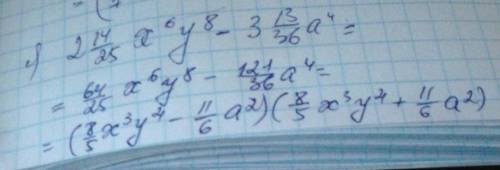 г) 2 14/25 x⁶y⁸ - 3 13/36 a⁴ =
= 64/25 x⁶y⁸ - 121/36 a⁴ =
= (8/5 x³y⁴ - 11/6 a²)(8/5 x³y⁴ + 11/6 a²)